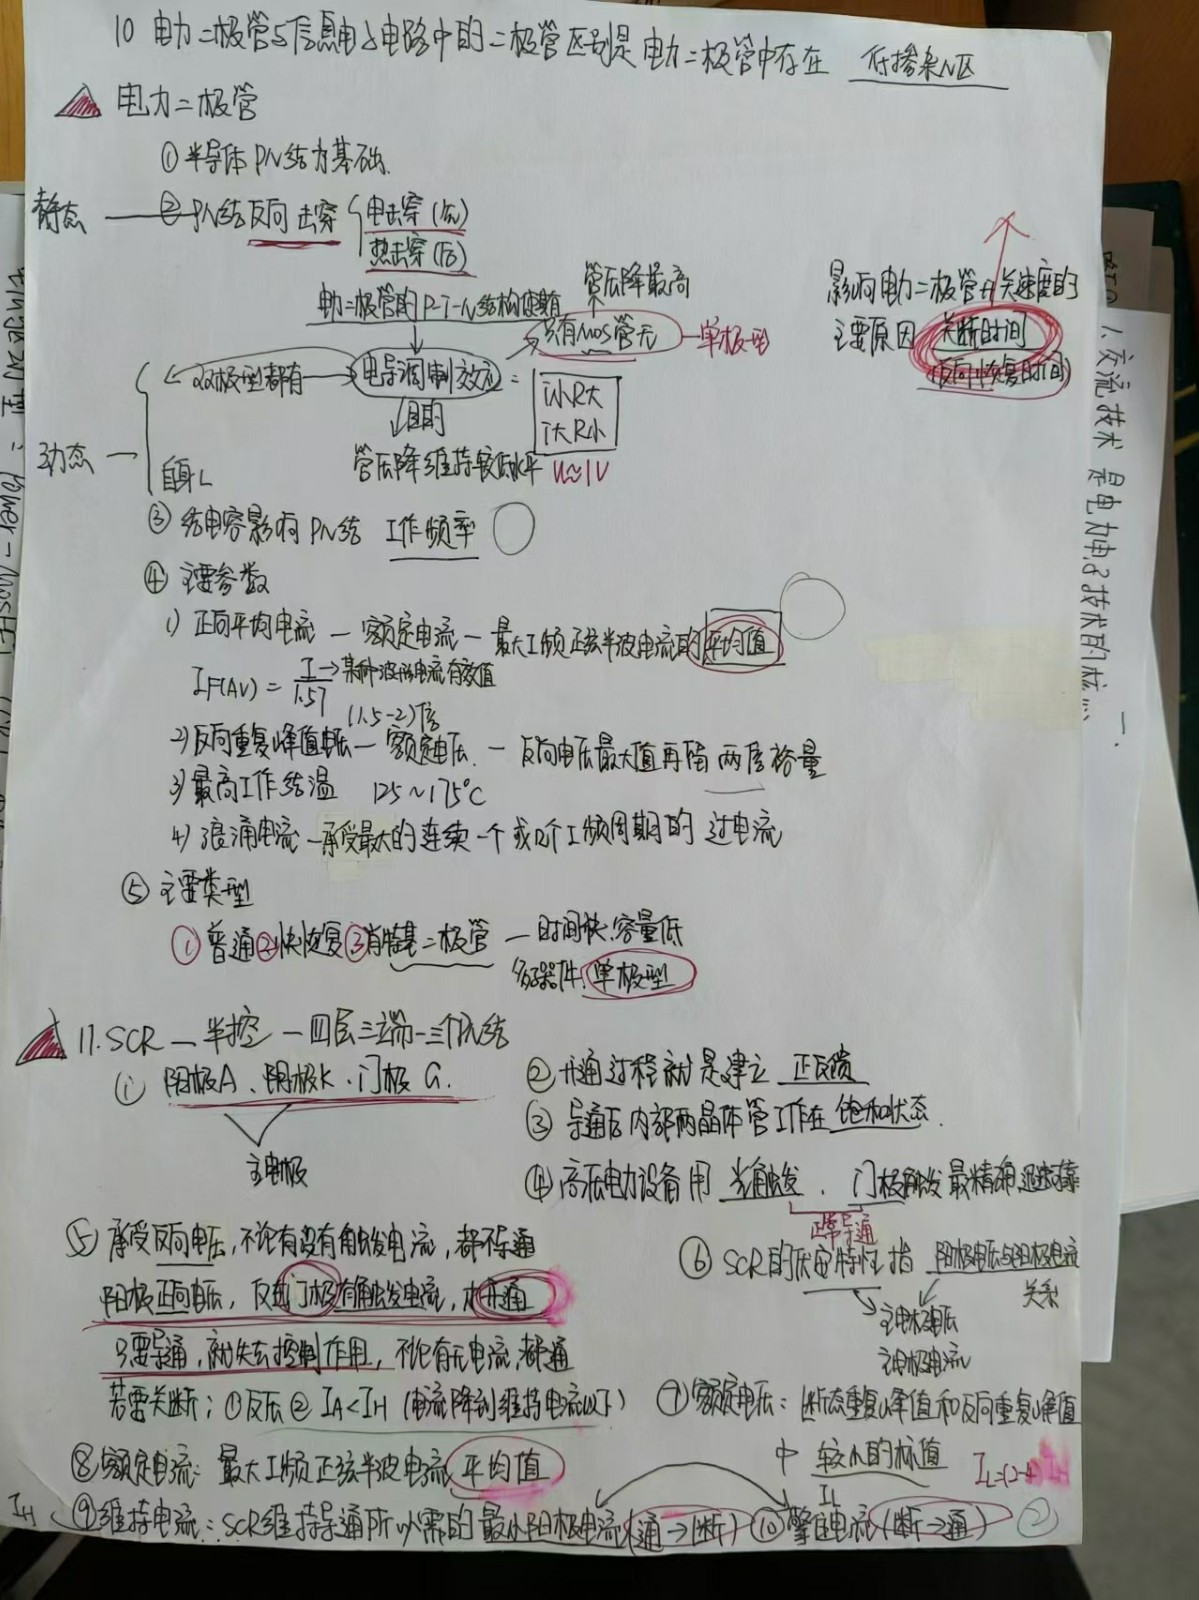 10 电力二极管与信息电子电路中的二极管区别是 电力二极管中存在 低掺杂N区
电力二极管
① 半导体PN结为基础.
静态 — ② PN结反向击穿
电击穿(先)
热击穿(后)
电力二极管的P-I-N结构使其有
管压降最高
只有MOS管无 — 单极型
影响电力二极管开关速度的
主要原因 关断时间
(反向恢复时间)
双极型都有 电导调制效应 =
i小R大
i大R小
目的
动态
管压降维持较低水平 U≈1V
自身L
③ 结电容影响PN结 工作频率
④ 主要参数
1) 正向平均电流 — 额定电流 — 最大工频正弦半波电流的平均值
IF(AV) = I/1.57 → 某种波形电流有效值
(1.5-2)倍
2) 反向重复峰值电压 — 额定电压. — 反向电压最大值再留 两倍裕量
3) 最高工作结温 125~175℃
4) 浪涌电流 — 承受最大的连续一个或几个工频周期的过电流
⑤ 主要类型
①普通②快恢复③肖特基二极管 — 时间快.容量低
多子器件.单极型
11. SCR — 半控 — 四层三端 — 三个PN结
① 阳极A、阴极K、门极G.
主电极
② 开通过程就是建立 正反馈
③ 导通后内部两晶体管工作在饱和状态.
④ 高压电力设备用 光触发 . 门极触发最精确迅速可靠
正常导通
⑤ 承受反向电压,不论有没有触发电流,都不导通
阳极正向电压,反 门极有触发电流,才开通
只要导通,就失去控制作用,不论有无电流,都通
若要关断; ①反压② IA<IH (电流降到维持电流以下)
⑥ SCR的伏安特性指 阳极电压与阳极电流
关系
主电极电压
主电极电流
⑦ 额定电压: 断态重复峰值和反向重复峰值
中 较小的标值
⑧ 额定电流: 最大工频正弦半波电流平均值
IL=(2-4)IH
IH ⑨ 维持电流: SCR维持导通所必需的最小阳极电流(通→断) ⑩ 擎住电流(断→通) ②
IL
1、交流技术 是电力电子技术的核心
一.